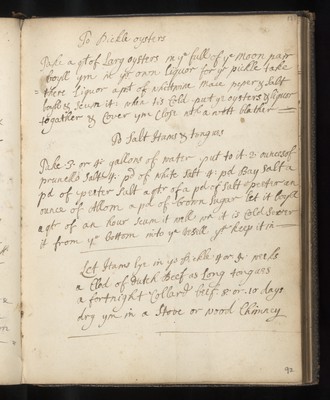 To Pickle oysters
Take a qt of Larg oysters in ye full of ye Moon parr
boyll ym in yr own liquor for ye pickle take
there Liquor a pt of whitewine Mace peper & Salt
boyll & Scum it: when tis Cold put ye oysters & liquor
togather & Cover ym Close with a wett blather
To Salt Hams & tongues
Take 3 or 4 gallons of water put to it 2 ounces of
prunello Salt 4 pd of white Salt 4 pd Bay Salt a
pd of peeter Salt a qtr of a pd of Salt peeter an
ounce of Allom a pd of brown Sugar let it boyll
a qtr of an hour scum it well wn it is Cold
it from ye bottom into ye vesell yt keep it in
Let Hams lye in ys pickle 4 or 5 weeks
a Clod of Dutch Beef as Long tongues
a fortnight Collard beef 8 or 10 days
dry ym in a Stove or wood Chimney
92